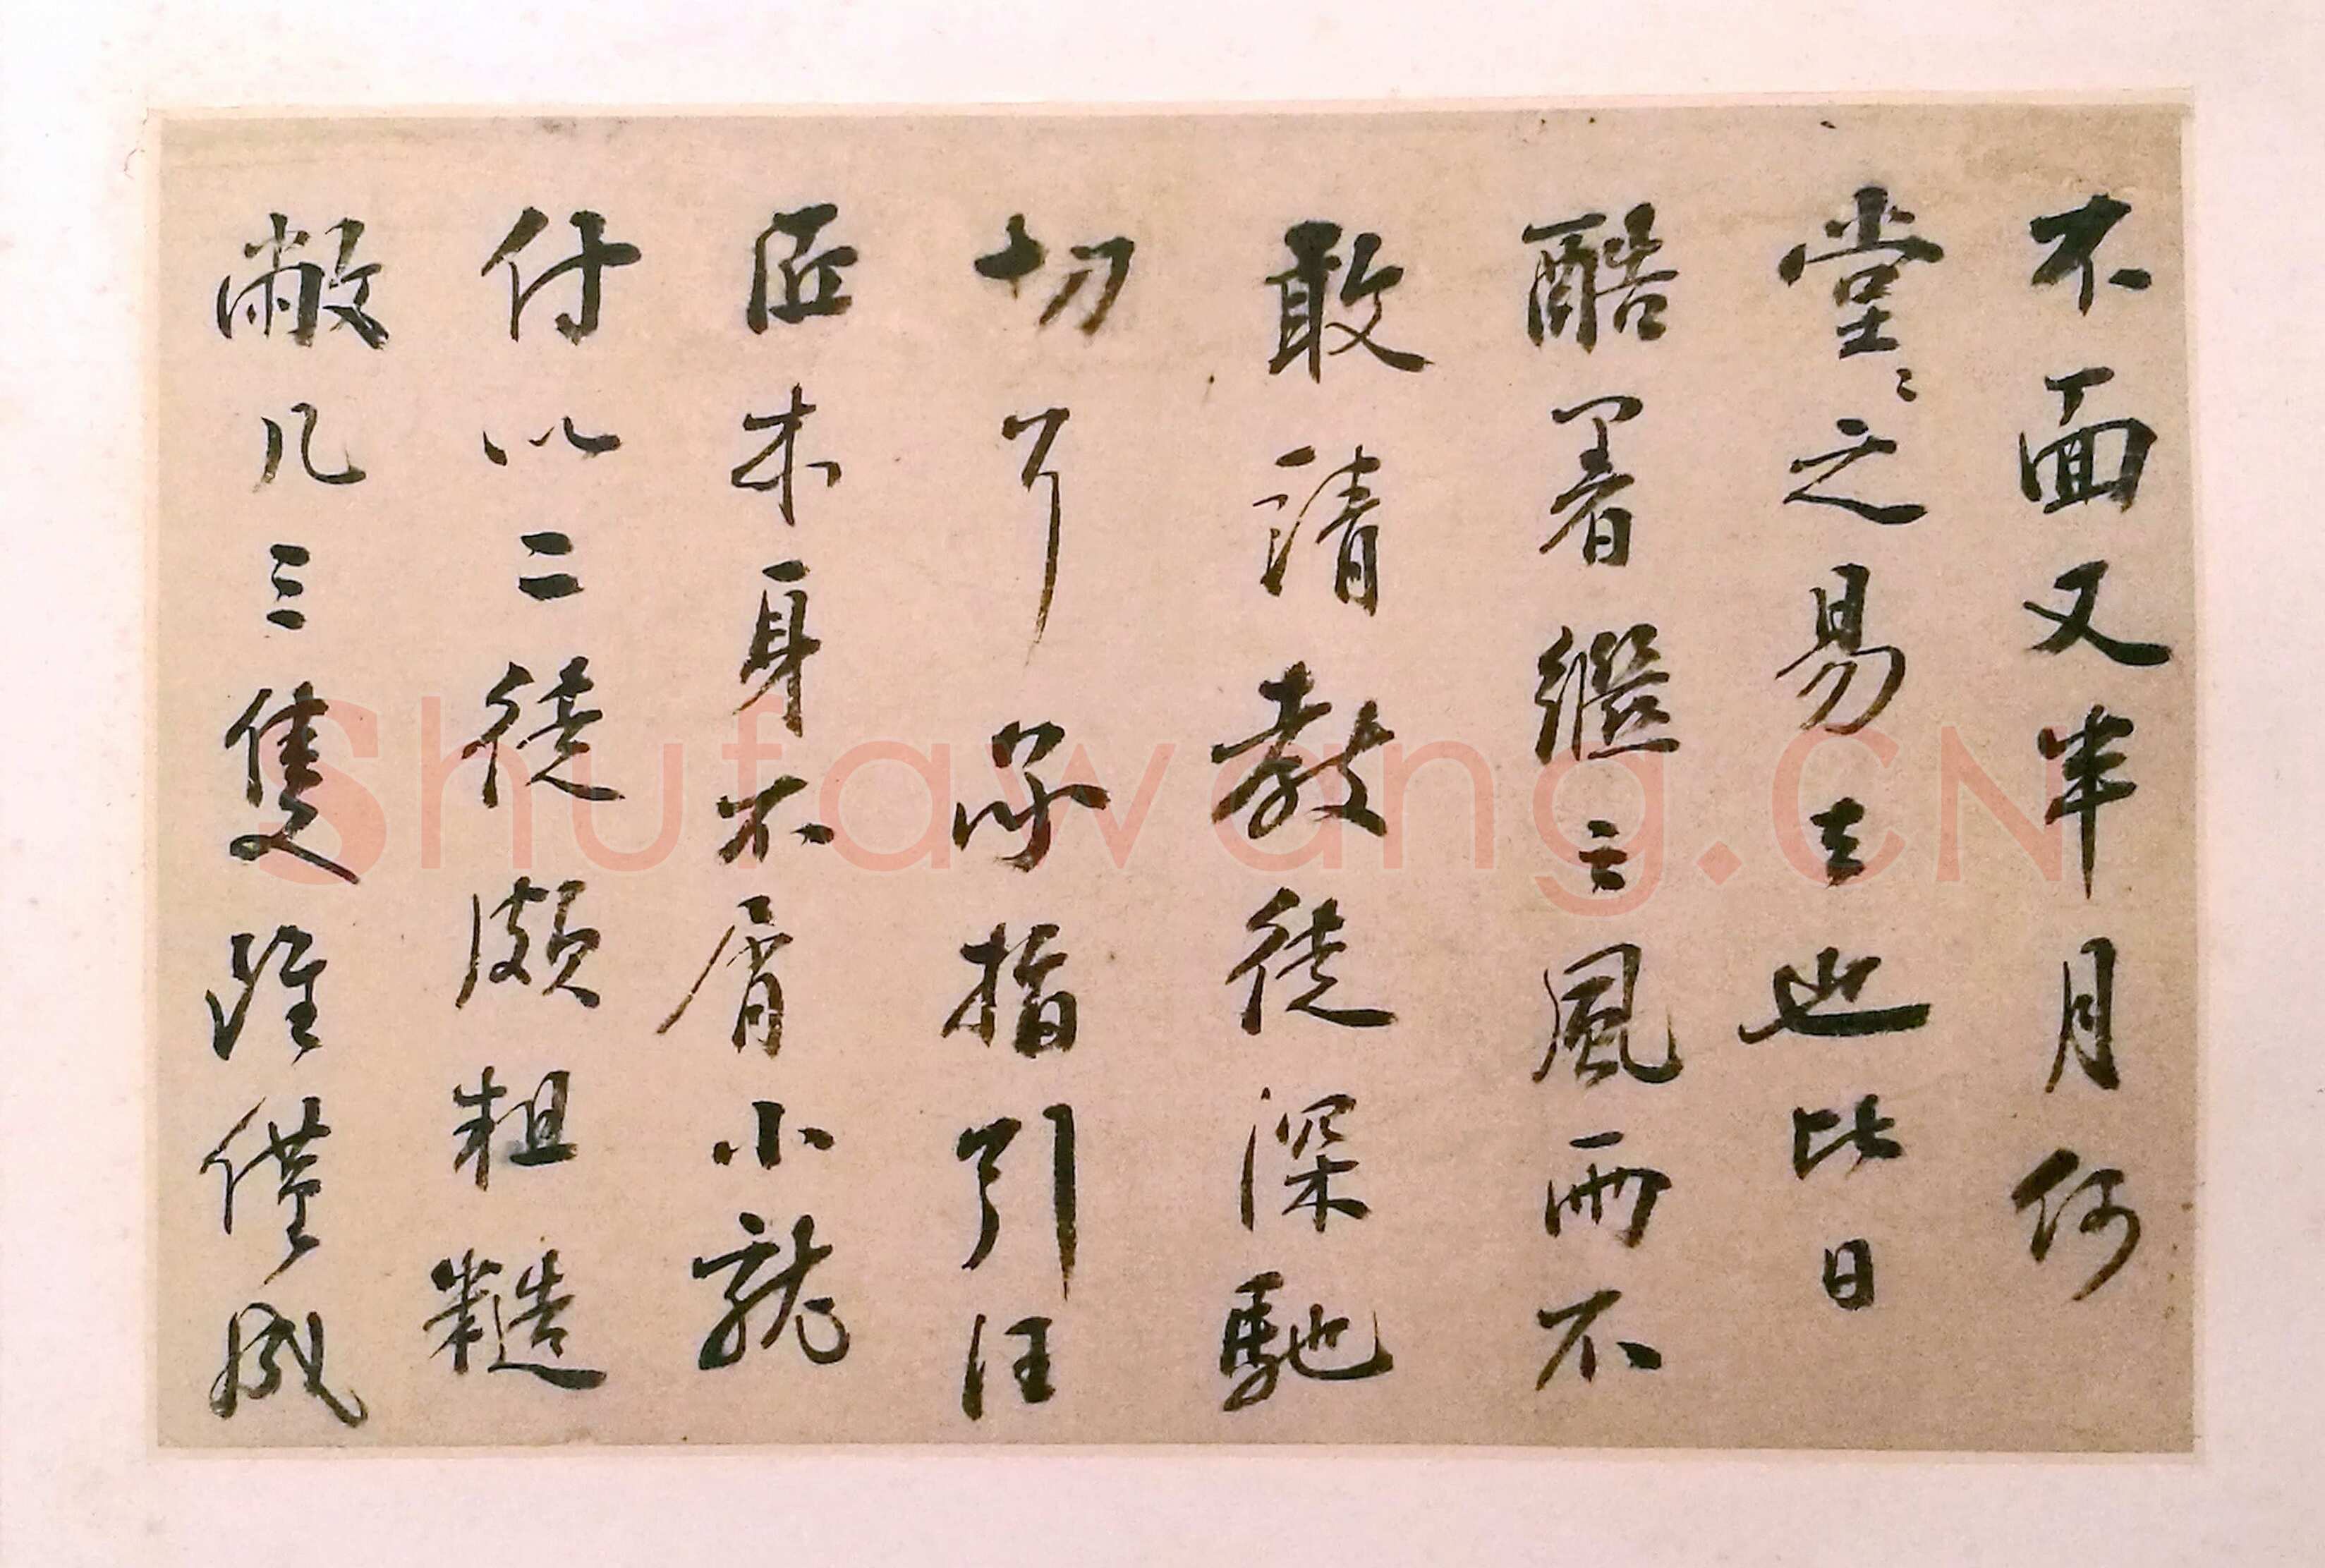 不面又半月何
堂〻之易去也比日
酷暑繼之風雨不
敢請教徒深馳
切耳承指引汪
匠本身不屑小就
付以二徒頗粗糙
敝几三隻雖僅成
Shufawang.CN